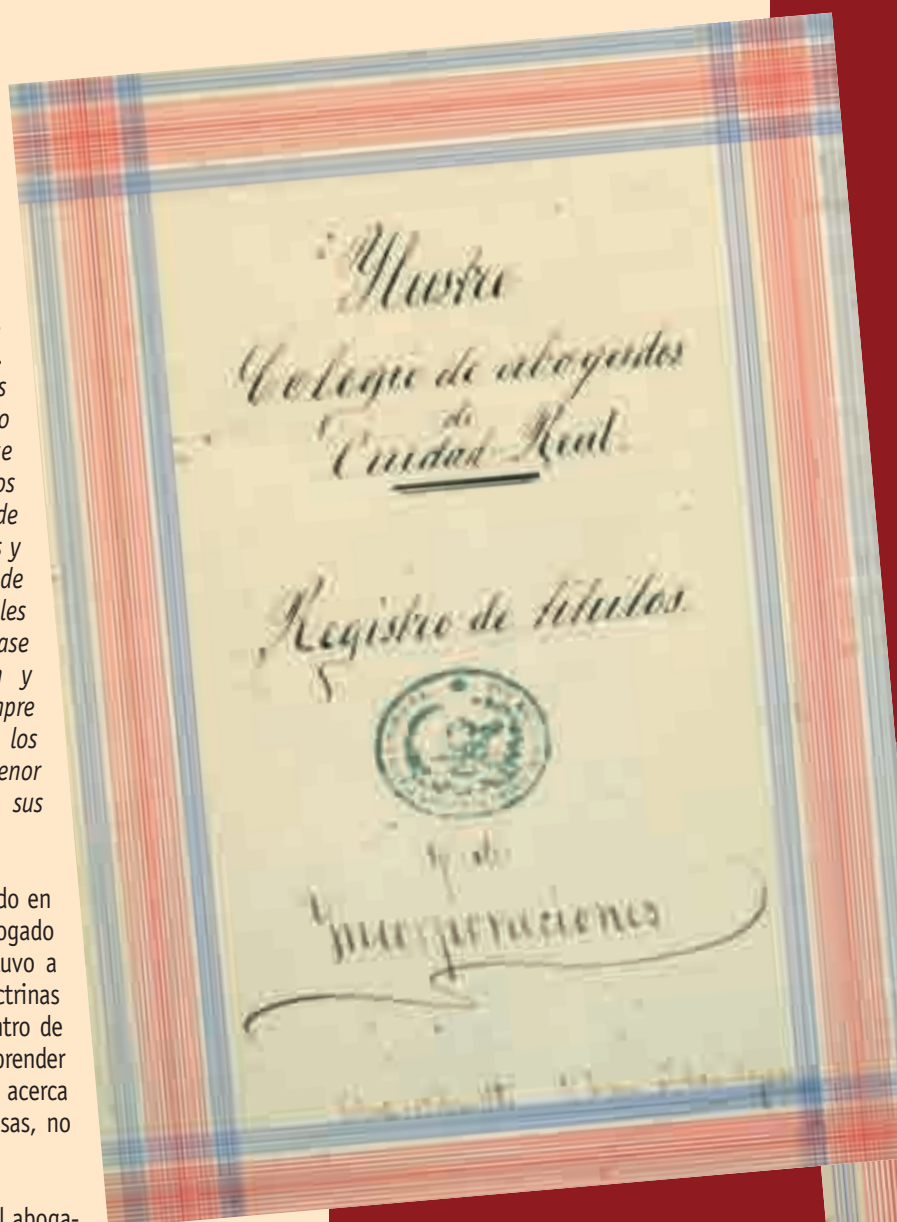 s
o
se
os
de
s y
de
les
ase
y
pre
los
enor
sus
do en
ogado
uvo a
ctrinas
ntro de
prender
acerca
sas, no
l aboga-
Ylustre
Colegio de abogados
de
Ciudad-Real.
Registro de títulos.
y de
Yncorporaciones